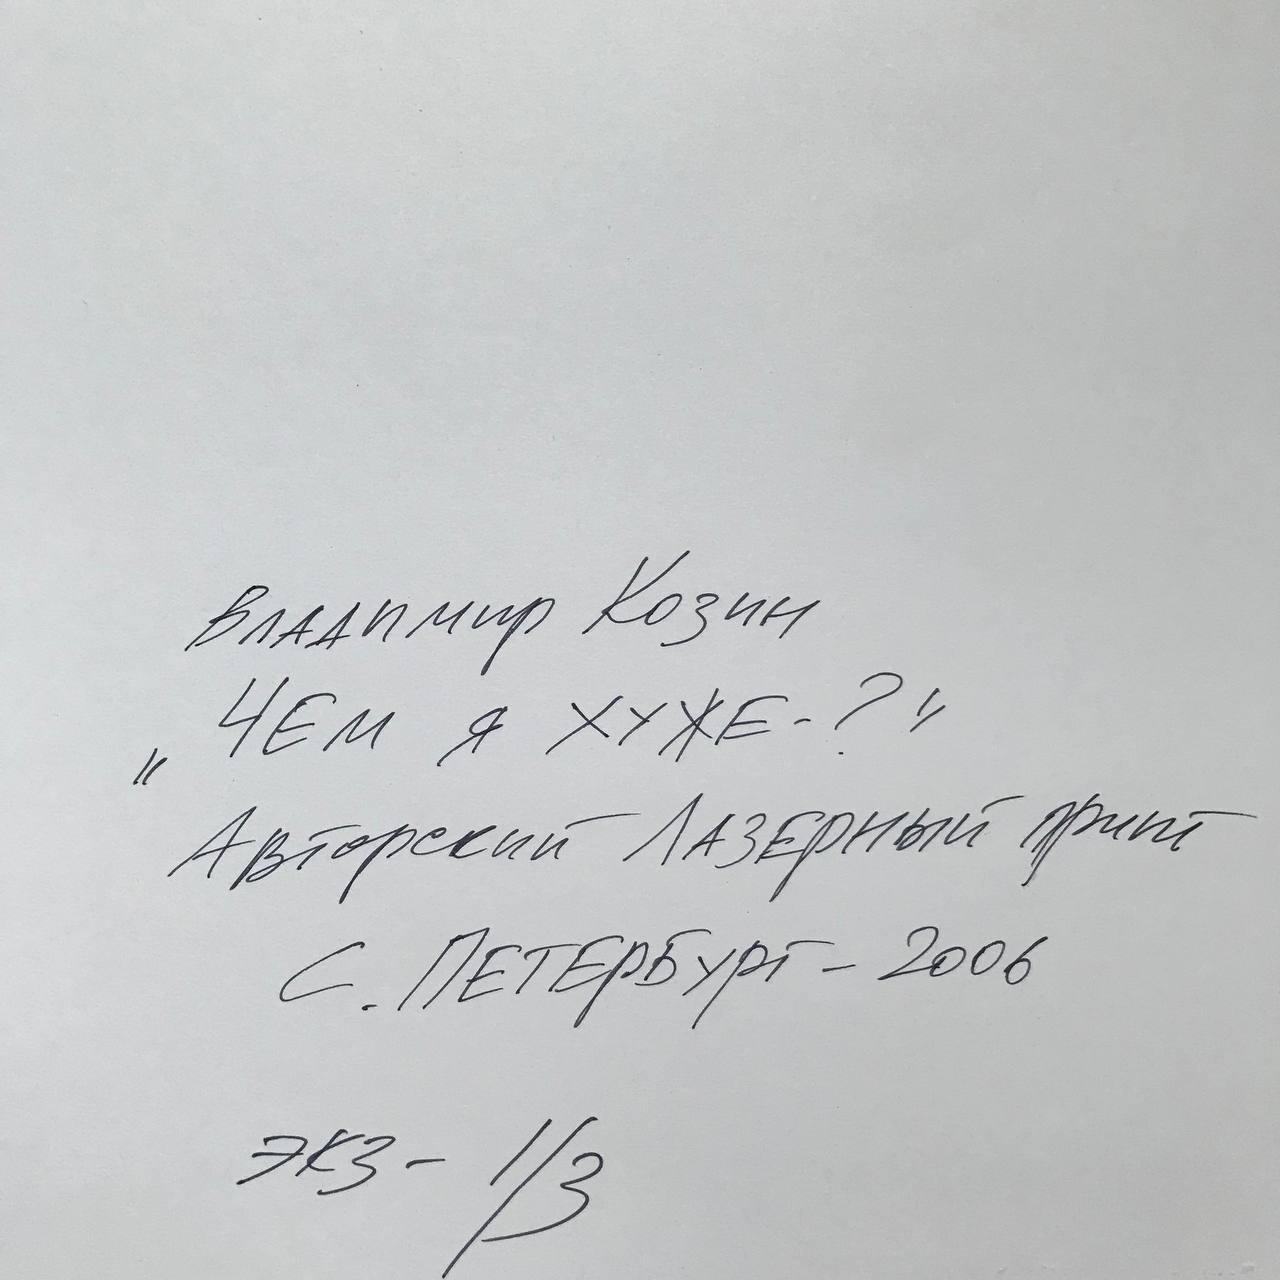 Владимир Козин
„Чем я хуже-?"
Авторский Лазерный принт
С. Петербург - 2006
экз - 1/3